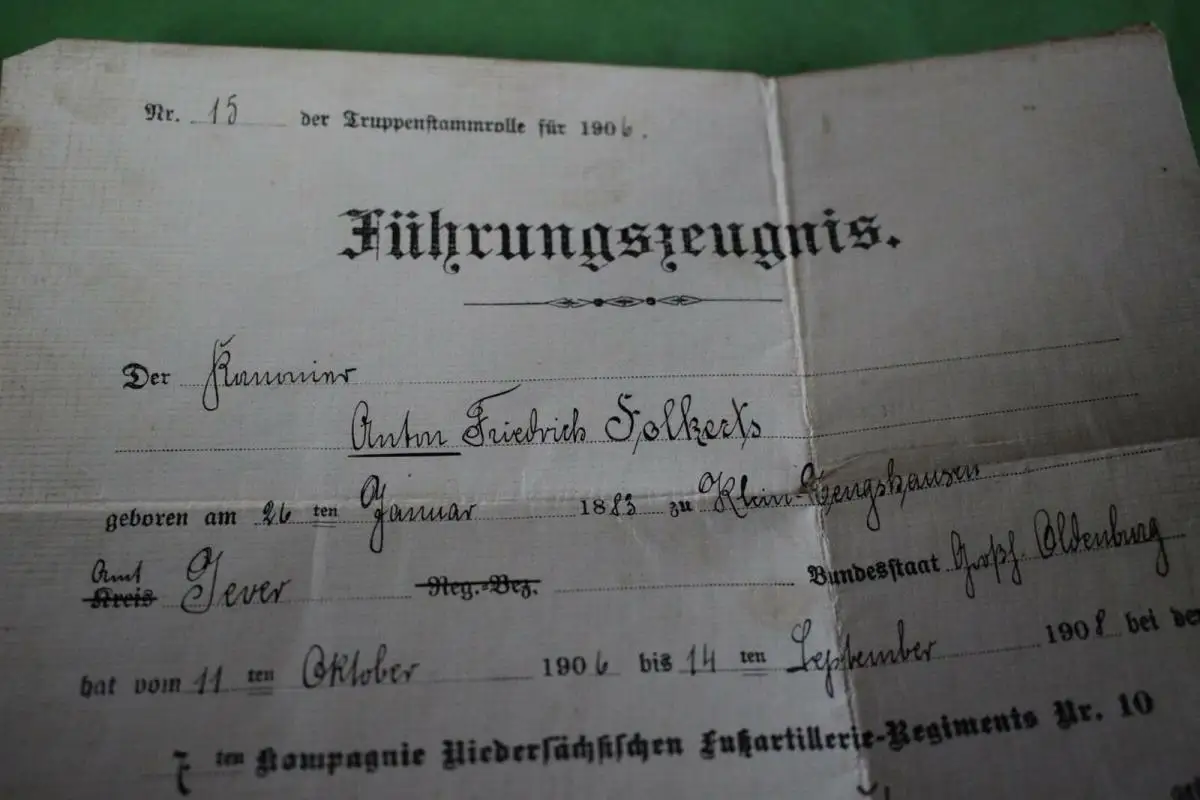 Nr. 15 der Truppenstammrolle für 1906.
Führungszeugnis.
Der Kanonier
Anton Friedrich Folkerts
geboren am 26 ten Januar 1883 zu Klein-
Amt
Kreis Jever Reg.-Bez. Bundesstaat Großh. Oldenburg
hat vom 11 ten Oktober 1906 bis 14 ten September 1908 bei der
7 ten Kompagnie Niedersächsischen Fußartillerie-Regiments Nr. 10